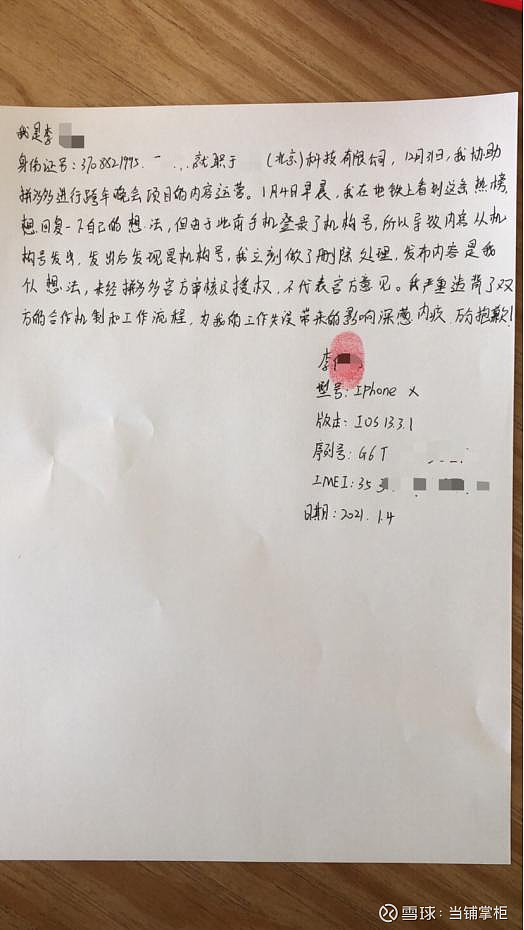 我是李
身份证号:3708821995. 就职于 (北京)科技有限公司,12月31日,我协助
拼多多进行跨年晚会项目的内容运营。1月4日早晨,我在地铁上看到这条热榜
想回复一下自己的想法,但由于此前手机登录了机构号,所以导致内容从机
构号发出,发出后发现是机构号,我立刻做了删除处理,发布内容是我
个人想法,未经拼多多官方审核及授权,不代表官方意见。我严重违背了双
方的合作机制和工作流程,为我的工作失误带来的影响深感内疚,万分抱歉!
李
型号:IPhone X
版本:IOS 13.3.1
序列号:G6T
IMEI:35 3
日期:2021.1.4
雪球:当铺掌柜